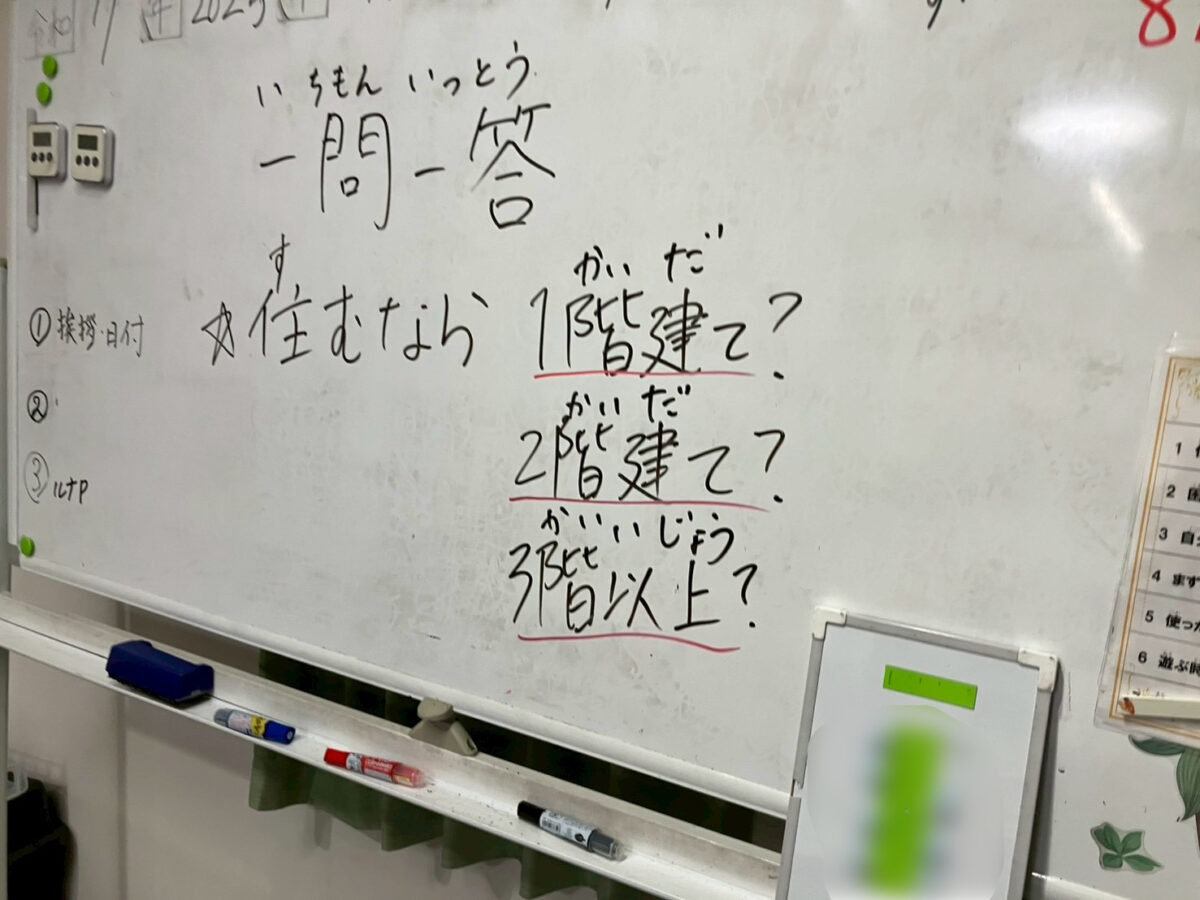 年 2025 年
いちもん いっとう
一問一答
す
☆住むなら
かい だ
1階建て?
かい だ
2階建て?
かい いじょう
3階以上?
① 挨拶・日付
②
③
1
2
3 自
4 まず
5 使っ
6 遊ぶ時